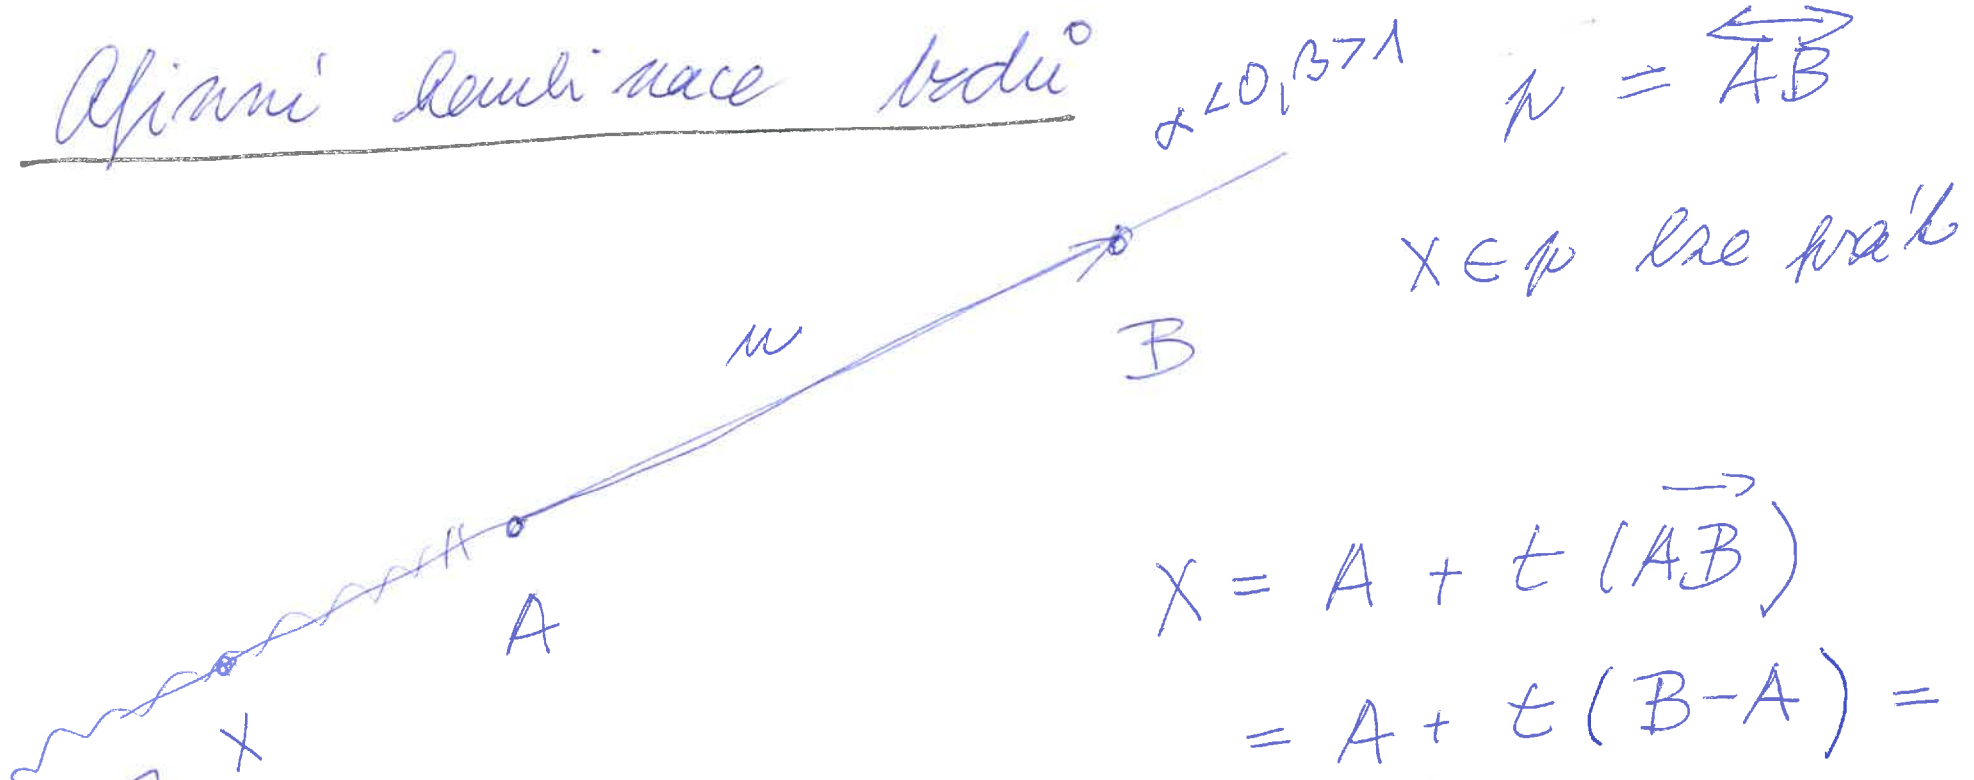 Afinní kombinace bodů
α<0, β>1
p = AB
X ∈ p lze psát
u
B
A
X
X = A + t (AB)
= A + t ( B - A ) =